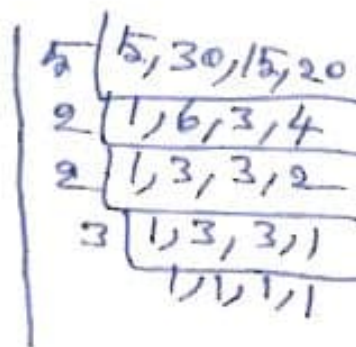 5 5, 30, 15, 20
2 1, 6, 3, 4
2 1, 3, 3, 2
3 1, 3, 3, 1
1, 1, 1, 1